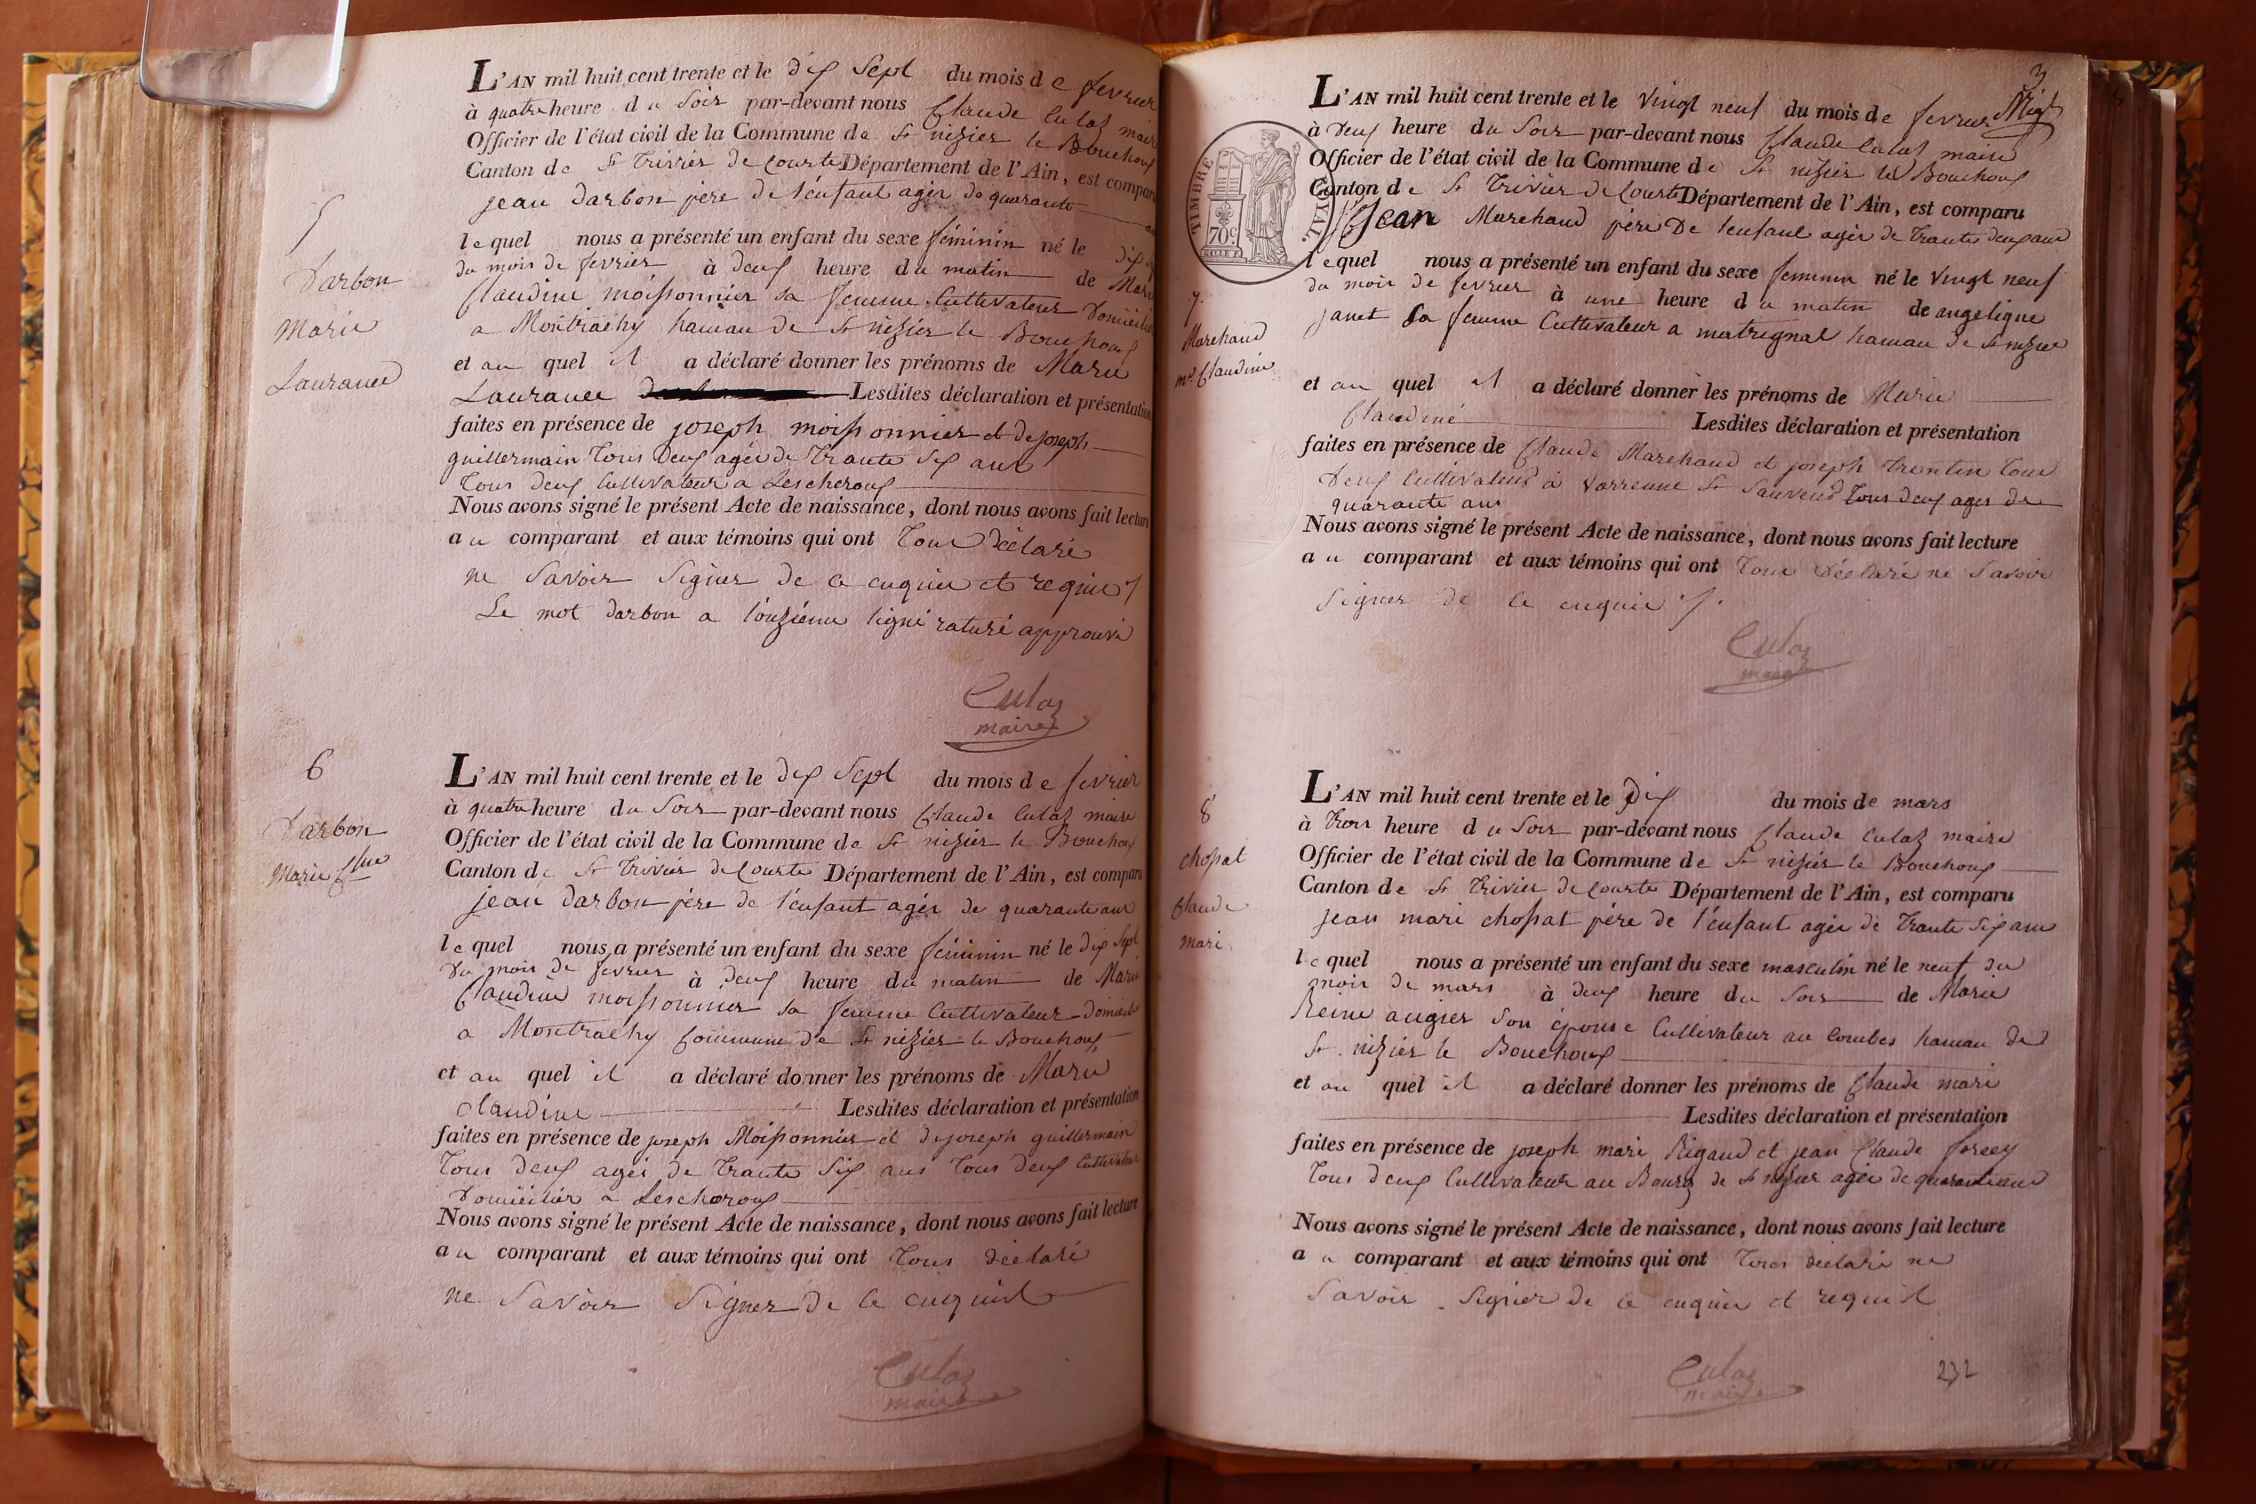 5
Darbon
Marie
Laurance
L'AN mil huit cent trente et le dix Sept du mois de fevrier
à quatre heure du Soir par-devant nous Claude Culaz maire
Officier de l'état civil de la Commune de St nizier le Bouchoux
Canton de St Trivier de Courte Département de l'Ain, est comparu
jean Darbon père de l'enfant agér de quarante
lequel nous a présenté un enfant du sexe féminin né le dix
du mois de fevrier à deux heure du matin de Marie
Claudine moissonnier sa femme Cultivateur Domicilié
a Montrachy hameau de St nizier le Bouchoux
et au quel il a déclaré donner les prénoms de Marie
Laurance Lesdites déclaration et présentation
faites en présence de joseph moissonnier et de joseph
guillermain Tous Deux agér de Trante Six ans
Tous deux Cultivateur a Lescheroux
Nous avons signé le présent Acte de naissance, dont nous avons fait lecture
au comparant et aux témoins qui ont Tous Déclaré
ne Savoir Signer de ce enquir et requir
Le mot darbon a l'onzième ligne raturé approuvé
Culaz
maire
6
Darbon
Marie Cline
L'AN mil huit cent trente et le dix Sept du mois de fevrier
à quatre heure du Soir par-devant nous Claude Culaz maire
Officier de l'état civil de la Commune de St nizier le Bouchoux
Canton de St Trivier de Courte Département de l'Ain, est comparu
jean Darbon père de l'enfant agér de quarante ans
lequel nous a présenté un enfant du sexe féminin né le dix Sept
Du mois de fevrier à deux heure du matin de Marie
Claudine moissonnier sa femme Cultivateur Domicilié
a Montrachy Commune de St nizier le Bouchoux
et au quel il a déclaré donner les prénoms de Marie
Claudine Lesdites déclaration et présentation
faites en présence de joseph Moissonnier et de joseph guillermain
Tous deux agér de Trante Six ans Tous deux Cultivateur
Domicilier a Lescheroux
Nous avons signé le présent Acte de naissance, dont nous avons fait lecture
au comparant et aux témoins qui ont Tous déclaré
ne Savoir Signer de ce enquis
Culaz
maire
3
TIMBRE ROYAL
70c
7
Marchand
me Claudine
L'AN mil huit cent trente et le Vingt neuf du mois de fevrier
à Deux heure du Soir par-devant nous Claude Culaz maire
Officier de l'état civil de la Commune de St nizier le Bouchoux
Canton de St Trivier de Courte Département de l'Ain, est comparu
Jean Marchand père De l'enfant agér de Trante deux ans
lequel nous a présenté un enfant du sexe feminin né le Vingt neuf
du mois de fevrier à une heure du matin de angelique
janet Sa femme Cultivateur a matrignat hameau de St nizier
et au quel il a déclaré donner les prénoms de Marie
Claudine Lesdites déclaration et présentation
faites en présence de Claude Marchand et joseph Trentin Tous
Deux Cultivateur à Varrenne St Sauveur Tous deux ager de
quarante ans
Nous avons signé le présent Acte de naissance, dont nous avons fait lecture
au comparant et aux témoins qui ont Tous Déclaré ne Savoir
Signer de ce enquir
Culaz
maire
8
chossat
Claude
mari
L'AN mil huit cent trente et le Dix du mois de mars
à Trois heure du Soir par-devant nous Claude Culaz maire
Officier de l'état civil de la Commune de St nizier le Bouchoux
Canton de St Trivier de Courte Département de l'Ain, est comparu
jean mari chossat père de l'enfant agér de Trante Six ans
lequel nous a présenté un enfant du sexe masculin né le neuf du
mois de mars à deux heure du Soir de Marie
Reine augier Son épouse Cultivateur au Combes hameau de
St nizier le Bouchoux
et au quel il a déclaré donner les prénoms de Claude mari
Lesdites déclaration et présentation
faites en présence de joseph mari Rigaud et jean Claude
Tous deux Cultivateur au Bourg de St nizier agér de quarante ans
Nous avons signé le présent Acte de naissance, dont nous avons fait lecture
au comparant et aux témoins qui ont Tous déclaré ne
Savoir Signer de ce enquir et requis
Culaz
maire
232